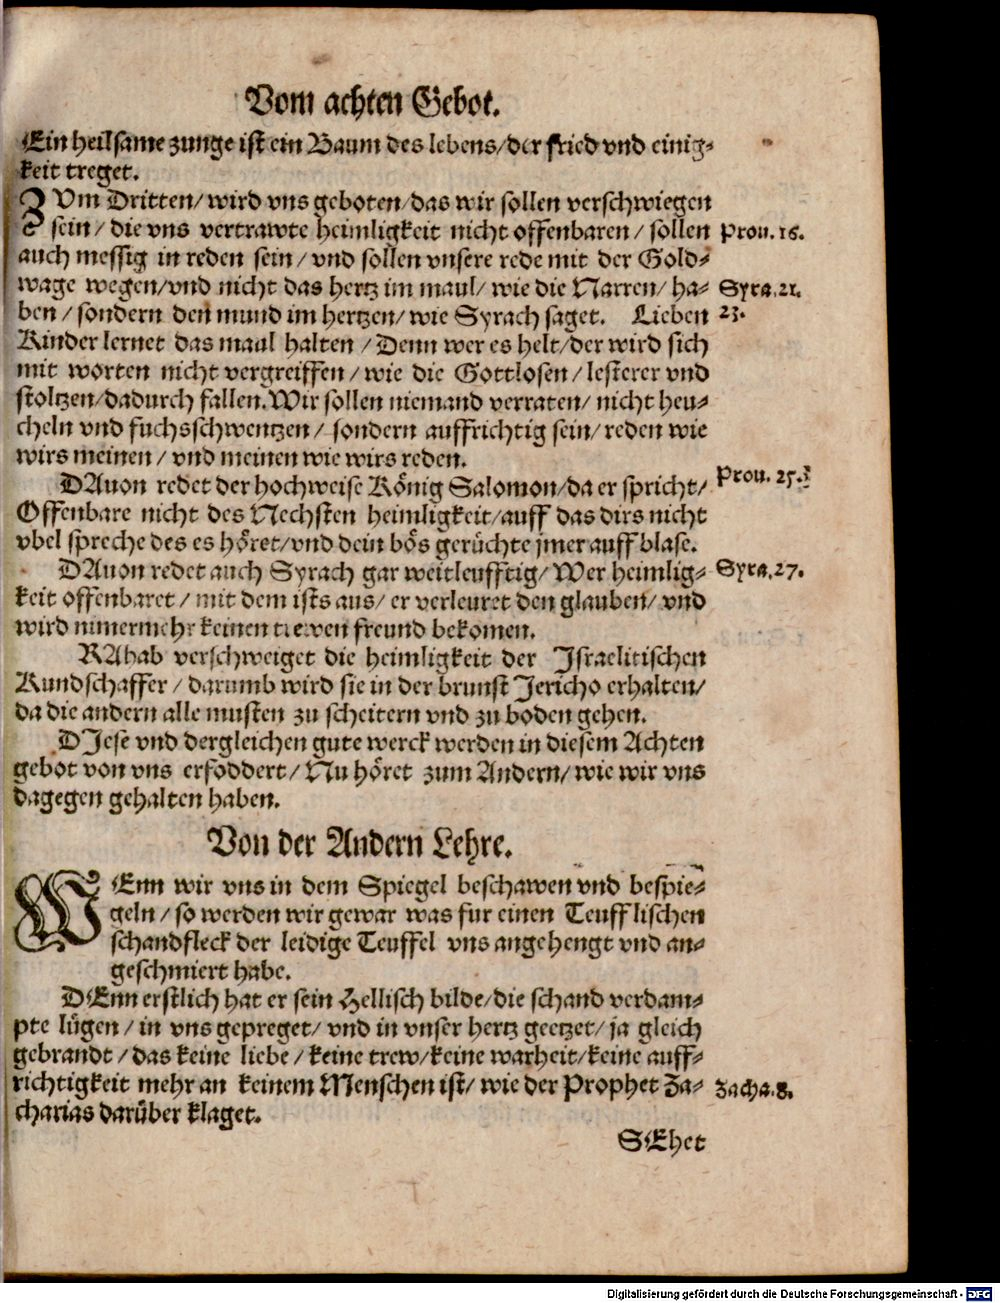 Vom achten Gebot.
Ein heilsame zunge ist ein Baum des lebens/der fried vnd einig-
keit treget.
ZVm Dritten/wird vns geboten/das wir sollen verschwiegen
sein/die vns vertrawte heimligkeit nicht offenbaren/sollen
Prou. 16.
auch messig in reden sein/vnd sollen vnsere rede mit der Gold-
wage wegen/vnd nicht das hertz im maul/wie die Narren/ha-
Syra.21.
ben/sondern den mund im hertzen/wie Syrach saget. Lieben
23.
Kinder lernet das maul halten/Denn wer es helt/der wird sich
mit worten nicht vergreiffen/wie die Gottlosen/lesterer vnd
stoltzen/dadurch fallen.Wir sollen niemand verraten/nicht heu-
cheln vnd fuchsschwentzen/sondern auffrichtig sein/reden wie
wirs meinen/vnd meinen wie wirs reden.
DAuon redet der hochweise König Salomon/da er spricht/
Prou. 25.
Offenbare nicht des Nechsten heimligkeit/auff das dirs nicht
vbel spreche des es höret/vnd dein bös gerüchte jmer auff blase.
DAuon redet auch Syrach gar weitleufftig/Wer heimlig-
Syra.27.
keit offenbaret/mit dem ists aus/er verleuret den glauben/vnd
wird nimermehr keinen trewen freund bekomen.
RAhab verschweiget die heimligkeit der Israelitischen
Kundschaffer/darumb wird sie in der brunst Jericho erhalten/
da die andern alle musten zu scheitern vnd zu boden gehen.
DJese vnd dergleichen gute werck werden in diesem Achten
gebot von vns erfoddert/Nu höret zum Andern/wie wir vns
dagegen gehalten haben.
Von der Andern Lehre.
WEnn wir vns in dem Spiegel beschawen vnd bespie-
geln/so werden wir gewar was fur einen Teufflischen
schandfleck der leidige Teuffel vns angehengt vnd an-
geschmiert habe.
DEnn erstlich hat er sein Hellisch bilde/die schand verdam-
pte lügen/in vns gepreget/vnd in vnser hertz geetzet/ja gleich
gebrandt/das keine liebe/keine trew/keine warheit/keine auff-
richtigkeit mehr an keinem Menschen ist/wie der Prophet Za-
Zacha.8.
charias darüber klaget.
SEhet
Digitalisierung gefördert durch die Deutsche Forschungsgemeinschaft - DFG